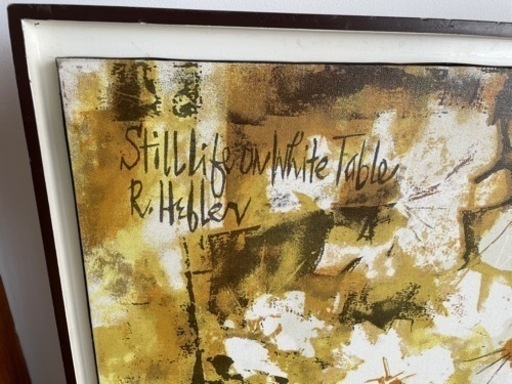 Still Life on White Table
R. Hefler